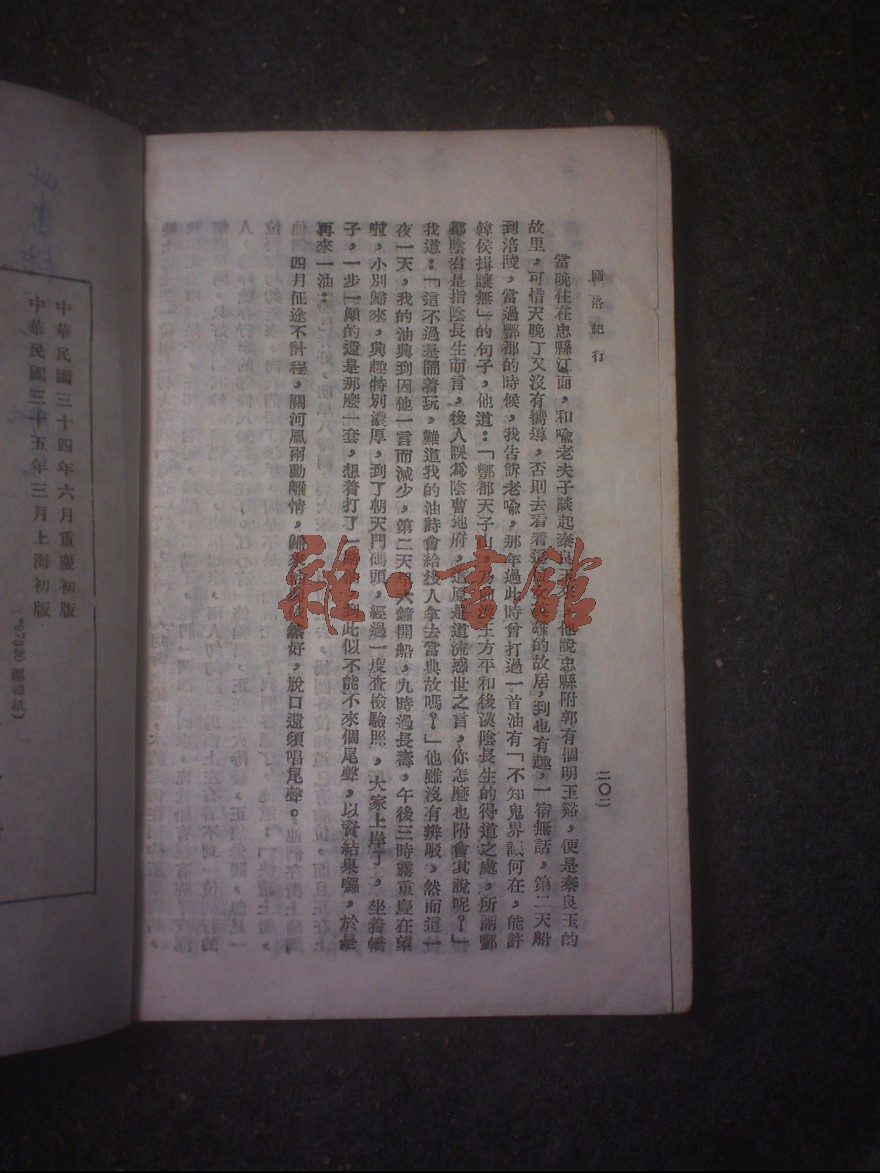 國洛紀行
二〇二
當晚住在忠縣江面，和喩老夫子談起秦良玉來，他說忠縣附郭有個明玉谿，便是秦良玉的
故里，可惜天晚了又沒有嚮導，否則去看看這位女英雄的故居，到也有趣，一宿無話，第二天船
到涪陵，當過酆都的時候，我告訴老喩，那年過此時曾打過一首油有「不知鬼界議何在，能許
韓侯揖讓無」的句子，他道：「酆都天子山，乃前漢王方平和後漢陰長生的得道之處，所謂酆
都陰君是指陰長生而言，後人誤爲陰曹地府，這原是道流惑世之言，你怎麼也附會其說呢？」
我道：「這不過是鬧着玩，難道我的油詩會給後人拿去當典故嗎？」他雖沒有辨駁，然而這一
夜一天，我的油興到因他一言而減少，第二天早六鐘開船，九時過長壽，午後三時霧重慶在望
啦，小別歸來，興趣特別濃厚，到了朝天門碼頭，經過一度查檢驗照，大家上岸了，坐着轎
子，一步一顚的還是那麼一套，想着打了一路油，到此似不能不來個尾聲，以資結果囉，於是
再來一油：
四月征途不計程，關河風雨動離情，歸來 依然好，脫口還須唱尾聲。
中華民國三十四年六月重慶初版
中華民國三十五年三月上海初版
雅·書館